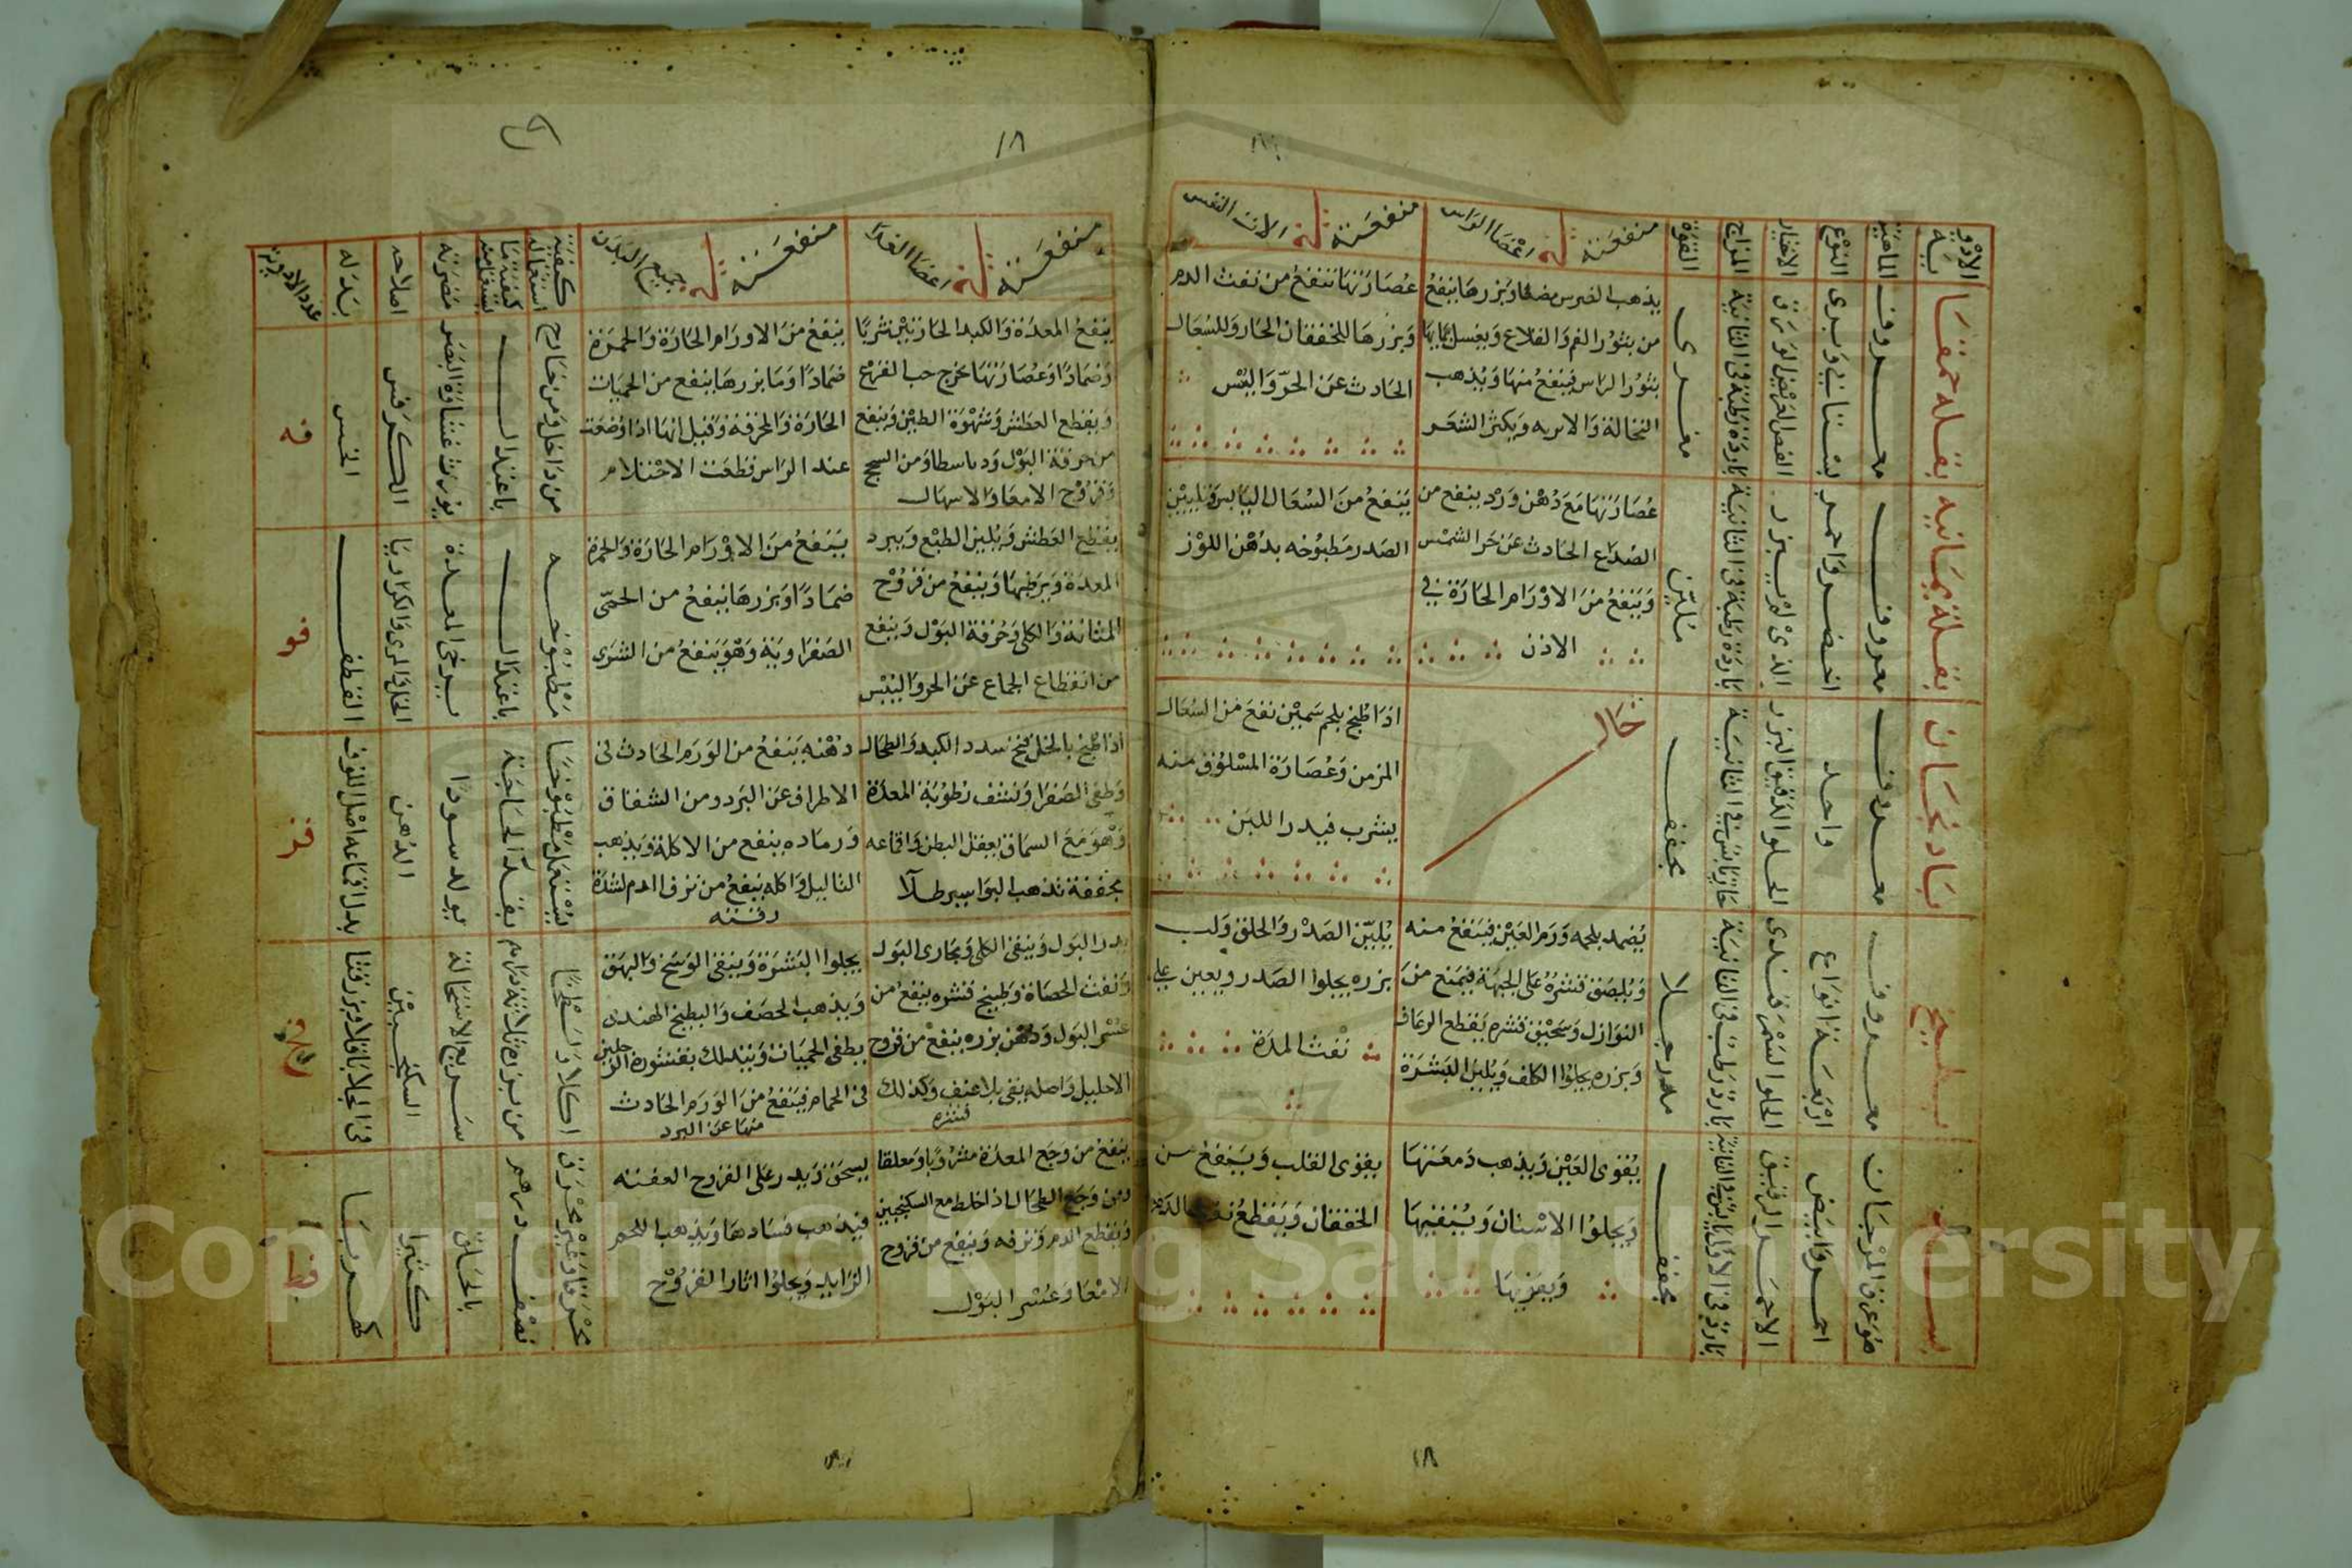 الادوية
الماهية
النوع
الاختيار
المزاج
القوة
منفعته في اعضا الراس
منفعته في الات النفس
بقله حمقا
معروف
بستاني وبرى
الغض العريض الورق
باردة رطبة في الثانية
مغرى
يذهب الضرس مضغا وبزرها ينفع
من بثور الفم والقلاع ويغسل بمايها
بثور الراس فينفع منها ويذهب
النخالة والابريه ويكثر الشعر
عصارتها تنفع من نفث الدم
وبزرها للخفقان الحار وللسعال
الحادث عن الحر واليبس
بقلة يمانيه
معروف
اخضر واحمر
الذى لم يبزر
باردة رطبة في الثانية
ملين
عصارتها مع دهن ورد ينفع من
الصداع الحادث عن حر الشمس
وينفع من الاورام الحارة في
الاذن
ينفع من السعال اليابس وتليين
الصدر مطبوخه بدهن اللوز
بادنجان
معروف
واحد
الحلو الدقيق البزر
حار يابس في الثانية
مجفف
خال
اذا طبخ بلحم سمين نفع من السعال
المزمن وعصارة المسلوق منه
يشرب فيدر اللبن
بطيخ
معروف
اربعة انواع
الحلو السمرقندى
بارد رطب في الثانية
مدر جلا
يضمد بلحمه ورم العين فينفع منه
ويلصق قشره على الجبهة فيمنع من
النوازل وسحيق قشره يقطع الرعاف
وبزره يجلوا الكلف ويلين البشرة
يلين الصدر والحلق ولب
بزره يجلوا الصدر ويعين على
نفث المدة
بسد
هو عرق المرجان
احمر وابيض
الاحمر الرقيق
بارد في الاولى يابس في الثانية
مجفف
يقوى العين ويذهب دمعتها
ويجلوا الاسنان وينقيها
ويقويها
يقوى القلب وينفع من
الخفقان ويقطع نفث الدم
١٨
١٨
منفعته في اعضا الغذا
منفعته في جميع البدن
كيفية استعماله
كمية ما يستعمل منه
مضرته
اصلاحه
بدله
عدد الادوية
ينفع المعدة والكبد الحارتين شربا
وضمادا وعصارتها تخرج حب القرع
ويقطع العطش وشهوة الطين وينفع
من حرقة البول ودياسطاو من السحج
وقروح الامعا والاسهال
ينفع من الاورام الحارة والحمرة
ضمادا وما بزرها ينفع من الحميات
الحارة والمحرقة وقيل انها اذا وضعت
عند الراس قطعت الاحتلام
من داخل ومن خارج
باعتدال
يورث غشاوة البصر
الكرفس
الخس
فه
يقطع العطش ويلين الطبع ويبرد
المعدة ويرطبها وينفع من قروح
المثانة والكلى وحرقة البول وينفع
من انقطاع الجماع عن الحر واليبس
ينفع من الاورام الحارة والحمرة
ضمادا وبزرها ينفع من الحمى
الصفراوية وهو ينفع من الشرى
مطبوخه
باعتدال
يرخى المعدة
الخل والمرى والكراويا
القطف
فو
اذا طبخ بالخل فتح سدد الكبد والطحال
وطفى الصفرا ونشف رطوبة المعدة
وهو مع السماق يعقل البطن واقماعه
مجففة تذهب البواسير طلآ
دهنه ينفع من الورم الحادث في
الاطراف عن البرد ومن الشقاق
ورماده ينفع من الاكلة ويذهب
الثاليل واكله ينفع من نزف الدم لشدة
يستعمل مطبوخا
بقدر الحاجة
يولد سودا
الدهن
بدل اقماعه اصل اللوف
فز
يدر البول وينقى الكلى ومجارى البول
وتفتت الحصاة وطبيخ قشره ينفع من
عسر البول ودهن بزره ينفع من قروح
الاحليل واصله يقى بلا عنف وكذلك
قشره
يجلوا البشرة وينقى الوسخ والبهق
ويذهب الحصف والبطيخ الهندى
يطفى الحميات ويتدلك بقشوره الرجلين
في الحمام فينفع من الورم الحادث
منها عن البرد
اكلا ولطخا
من بزره ثلاثة دراهم
سريع الاستحالة
السكنجبين
في الجلا باقلا وبزر قثا
فح
ينفع من وجع المعدة مشروبا ومعلقا
ومن وجع الطحال اذا خلط مع السكنجبين
ويقطع الدم ونزفه وينفع من قروح
الامعا وعسر البول
يسحق ويدر على القروح العفنه
فيذهب فسادها ويذهب اللحم
الزايد ويجلوا اثار القروح
محرقا وغير محرق
نصف درهم
بالحلق
كثيرا
كهربا
فط
١٨
Copyright © King Saud University